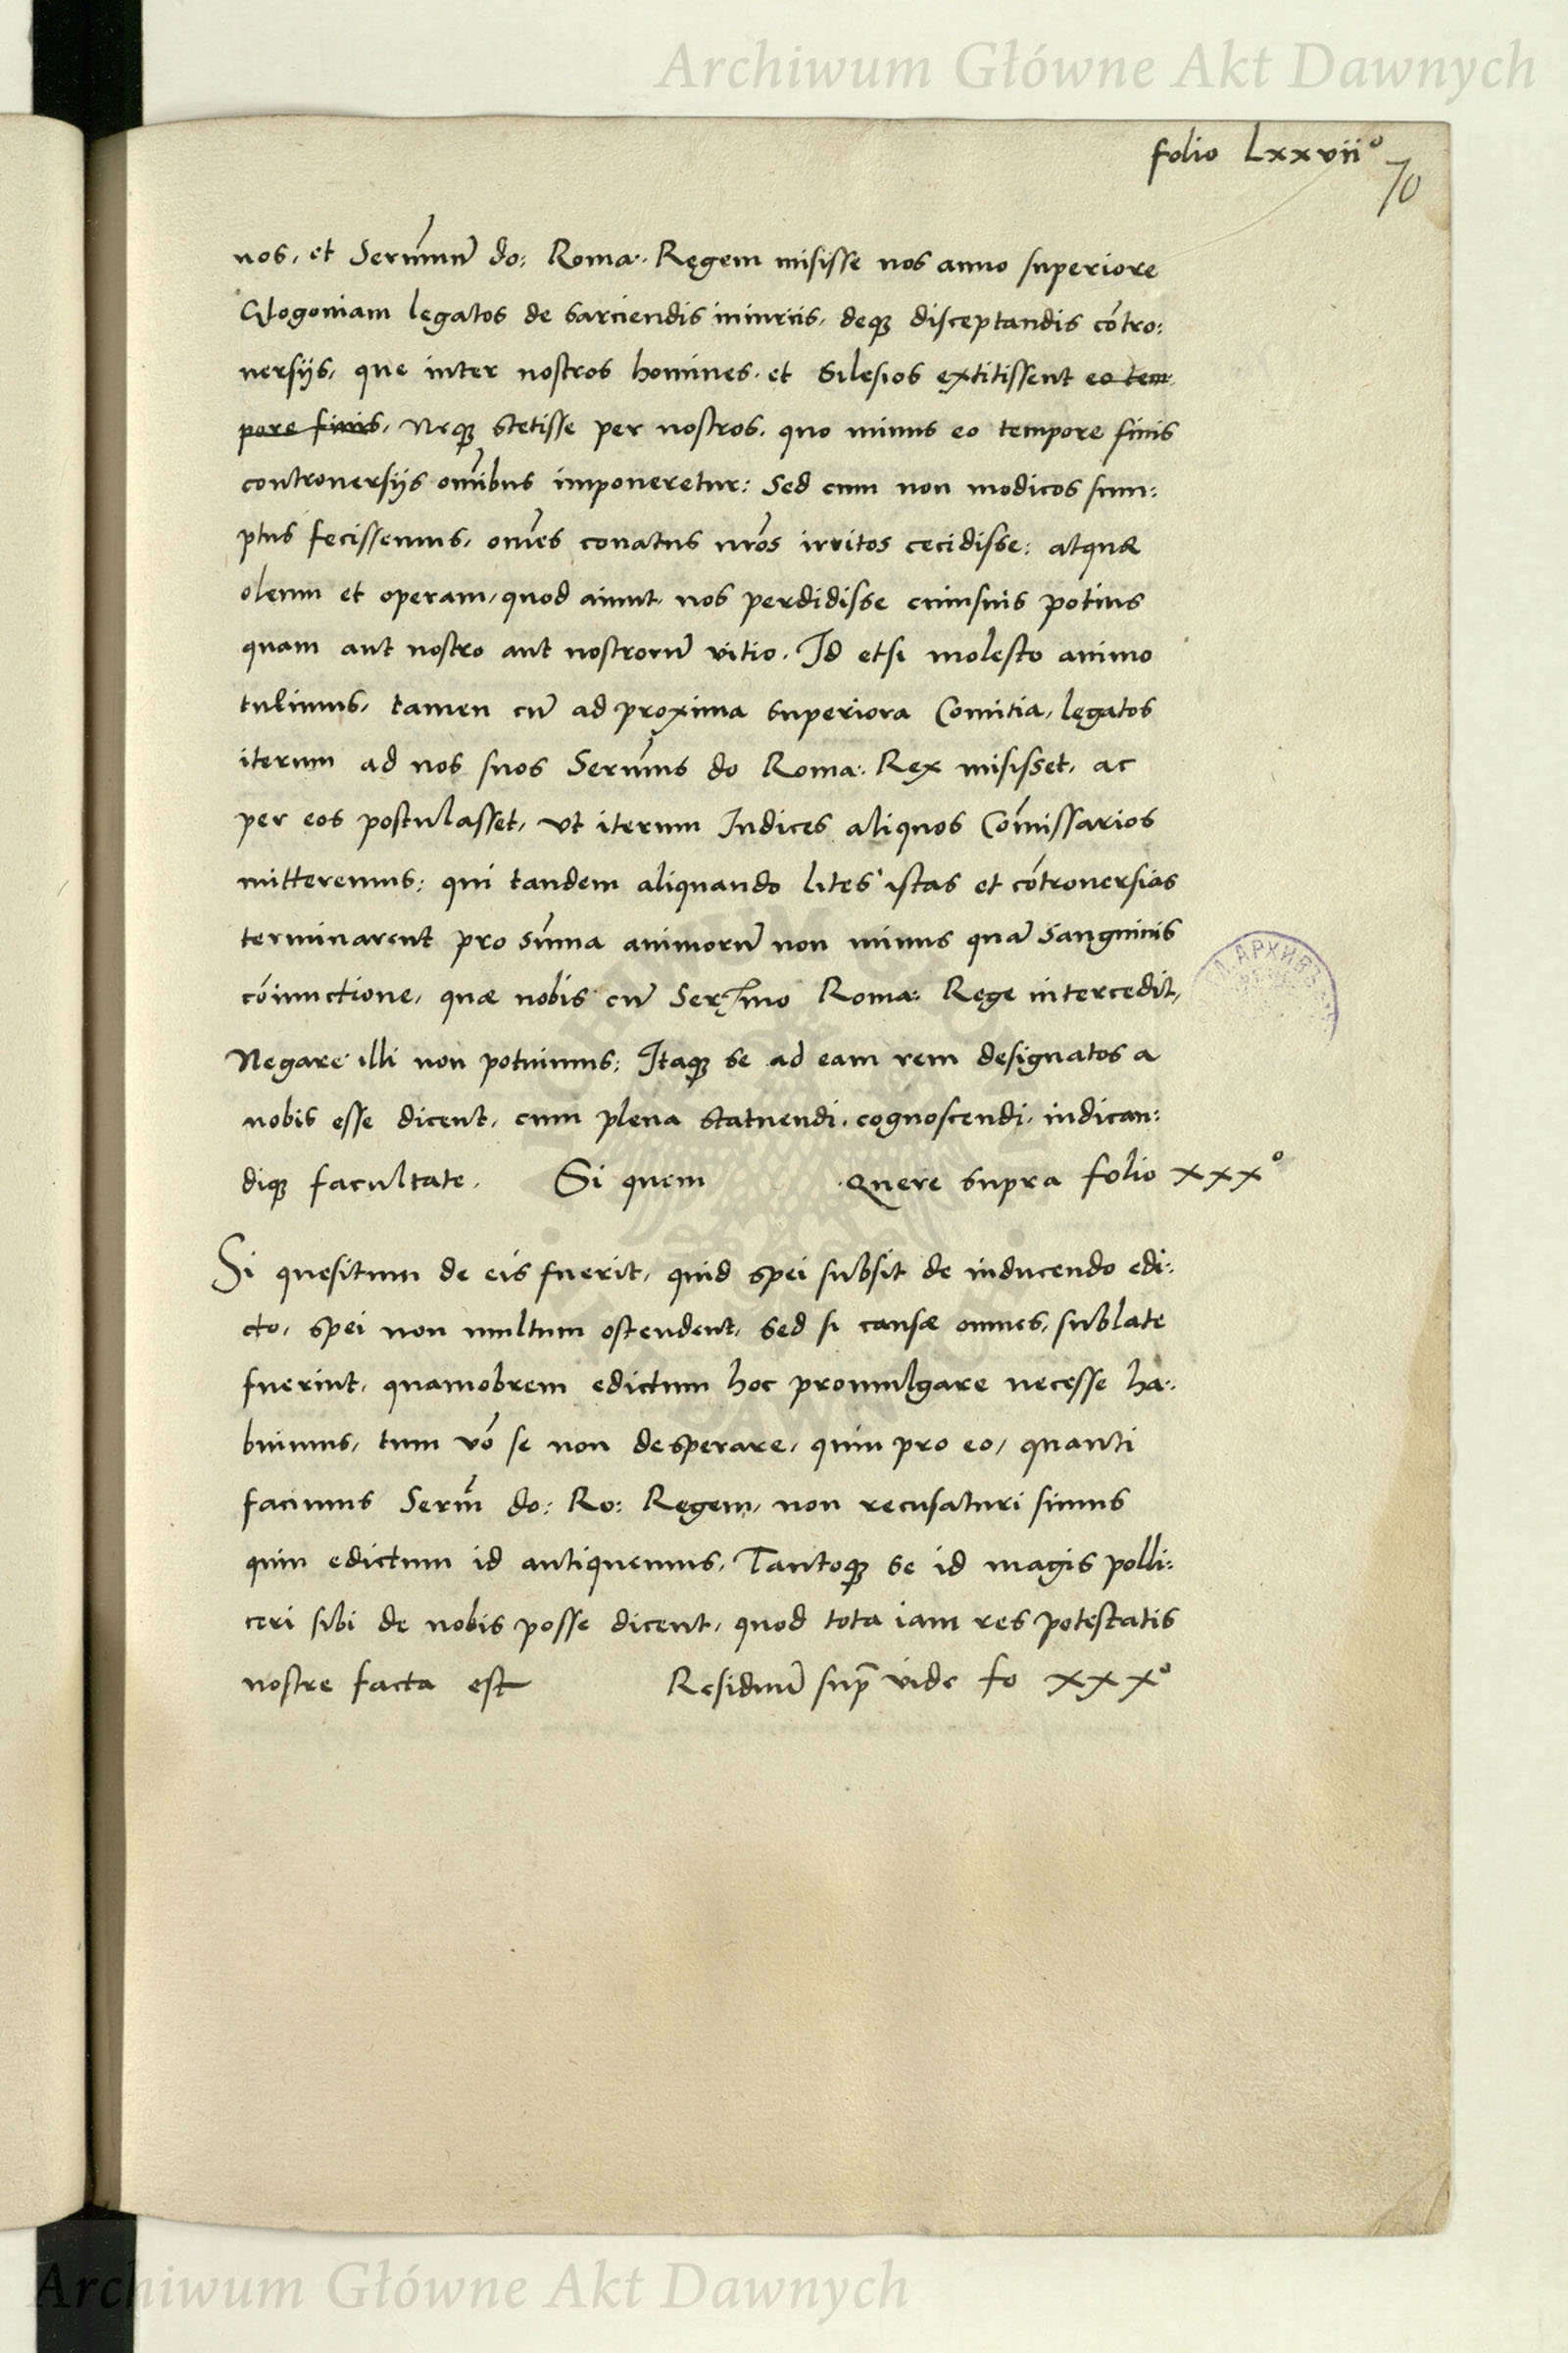 Archiwum Główne Akt Dawnych
folio Lxxvii°
70
nos, et Serm̃nuũ do: Roma: Regem misisse nos anno superiore
Glogoniam legatos de sarciendis iniuriis, deq̃ disceptandis cõtro:
uersijs, que inter nostros homines et Silesios extitissent eo tem
pore finis, Neq̃ stetisse per nostros, quo minus eo tempore finis
controuersijs om̃ibus imponeretur: Sed cum non modicos sum:
ptus fecissemus, om̃es conatus nr̃os irritos cecidisse: atque
oleum et operam, quod aiunt, nos perdidisse cuiusuis potius
quam aut nostro aut nostrorũ vitio. Id etsi molesto animo
tulimus, tamen cũ ad proxima superiora Comitia, legatos
iterum ad nos suos Serm̃us do Roma: Rex misisset, ac
per eos postulasset, vt iterum Iudices aliquos Com̃issarios
mitteremus: qui tandem aliquando lites istas et cõtrouersias
terminarent pro sum̃a animorũ non minus quã sanguinis
cõiunctione, quæ nobis cũ Ser̃mo Roma: Rege intercedit,
Negare illi non potuimus: Itaq̃ se ad eam rem designatos a
nobis esse dicent, cum plena statuendi, cognoscendi, iudican:
diq̃ facultate. Si quem Quere supra folio xxx°
Si quesitum de eis fuerit, quid spei subsit de inducendo edi:
cto, spei non multum ostendent, Sed si causæ omnes, sublate
fuerint, quamobrem edictum hoc promulgare necesse ha:
buimus, tum võ se non desperare, quin pro eo, quanti
facimus Serm̃ do: Ro: Regem, non recusaturi simus
quin edictum id antiquemus, Tantoq̃ se id magis polli:
ceri sibi de nobis posse dicent, quod tota iam res potestatis
nostre facta est Residuũ sup̃ vide fo xxx°
Archiwum Główne Akt Dawnych